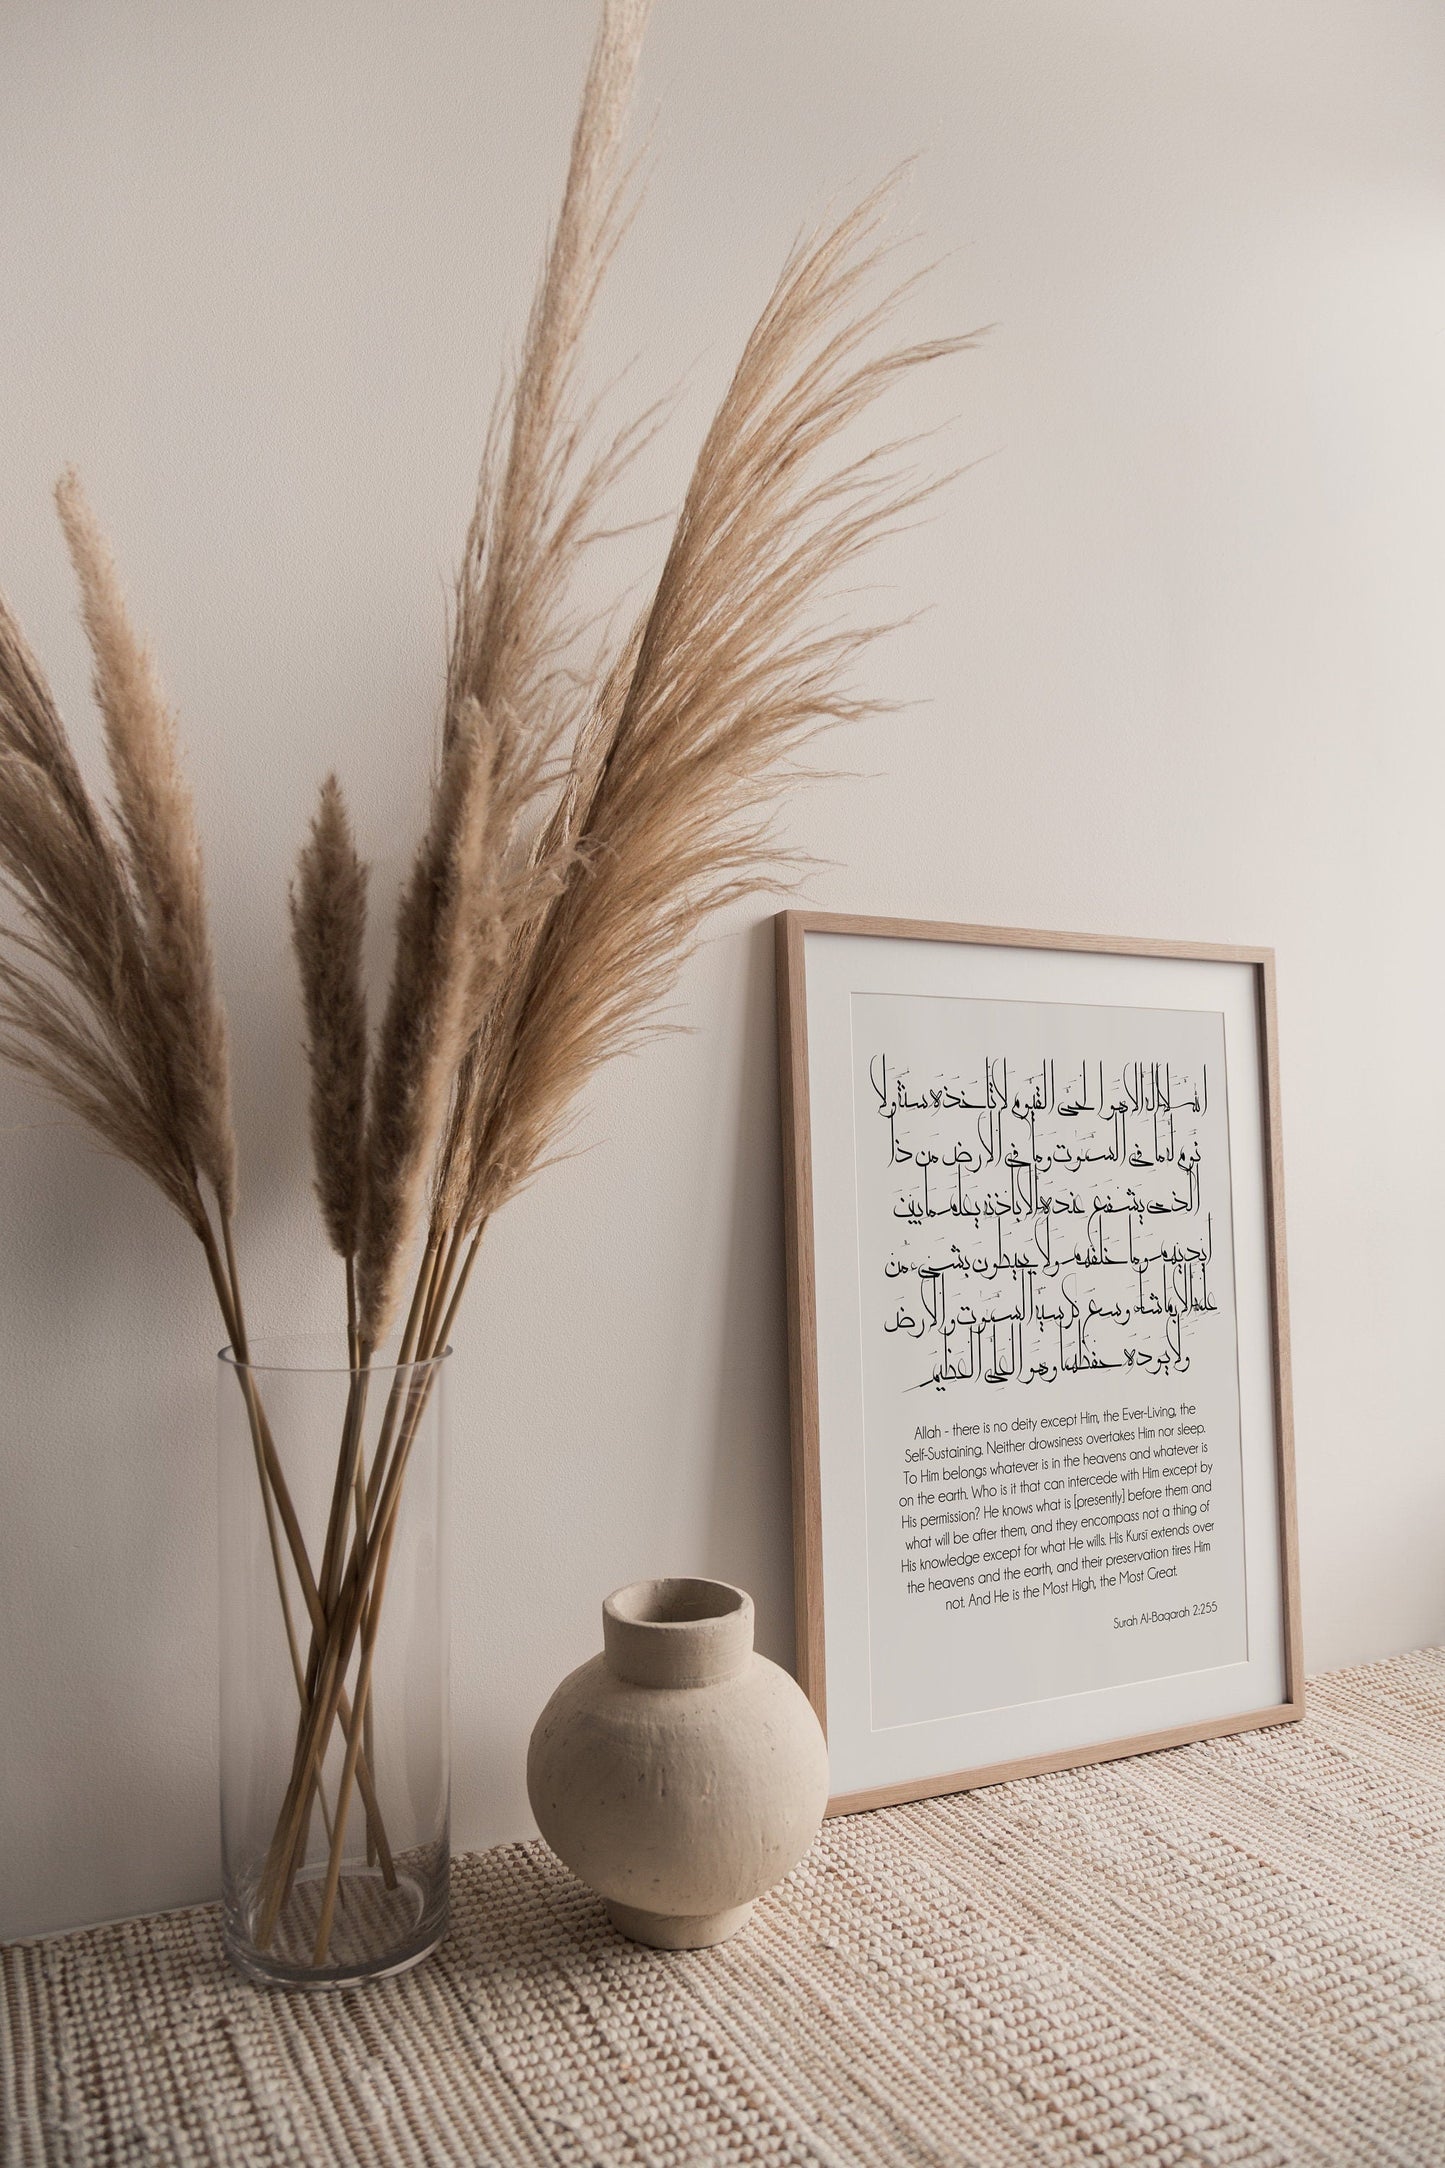 الله لا إله إلا هو الحي القيوم لا تأخذه سنة ولا
نوم له ما في السموت وما في الارض من ذا
الذي يشفع عنده إلا بإذنه يعلم ما بين
أيديهم وما خلفهم ولا يحيطون بشيء من
علمه إلا بما شاء وسع كرسيه السموت والارض
ولا يوده حفظهما وهو العلي العظيم
Allah - there is no deity except Him, the Ever-Living, the
Self-Sustaining. Neither drowsiness overtakes Him nor sleep.
To Him belongs whatever is in the heavens and whatever is
on the earth. Who is it that can intercede with Him except by
His permission? He knows what is [presently] before them and
what will be after them, and they encompass not a thing of
His knowledge except for what He wills. His Kursī extends over
the heavens and the earth, and their preservation tires Him
not. And He is the Most High, the Most Great.
Surah Al-Baqarah 2:255